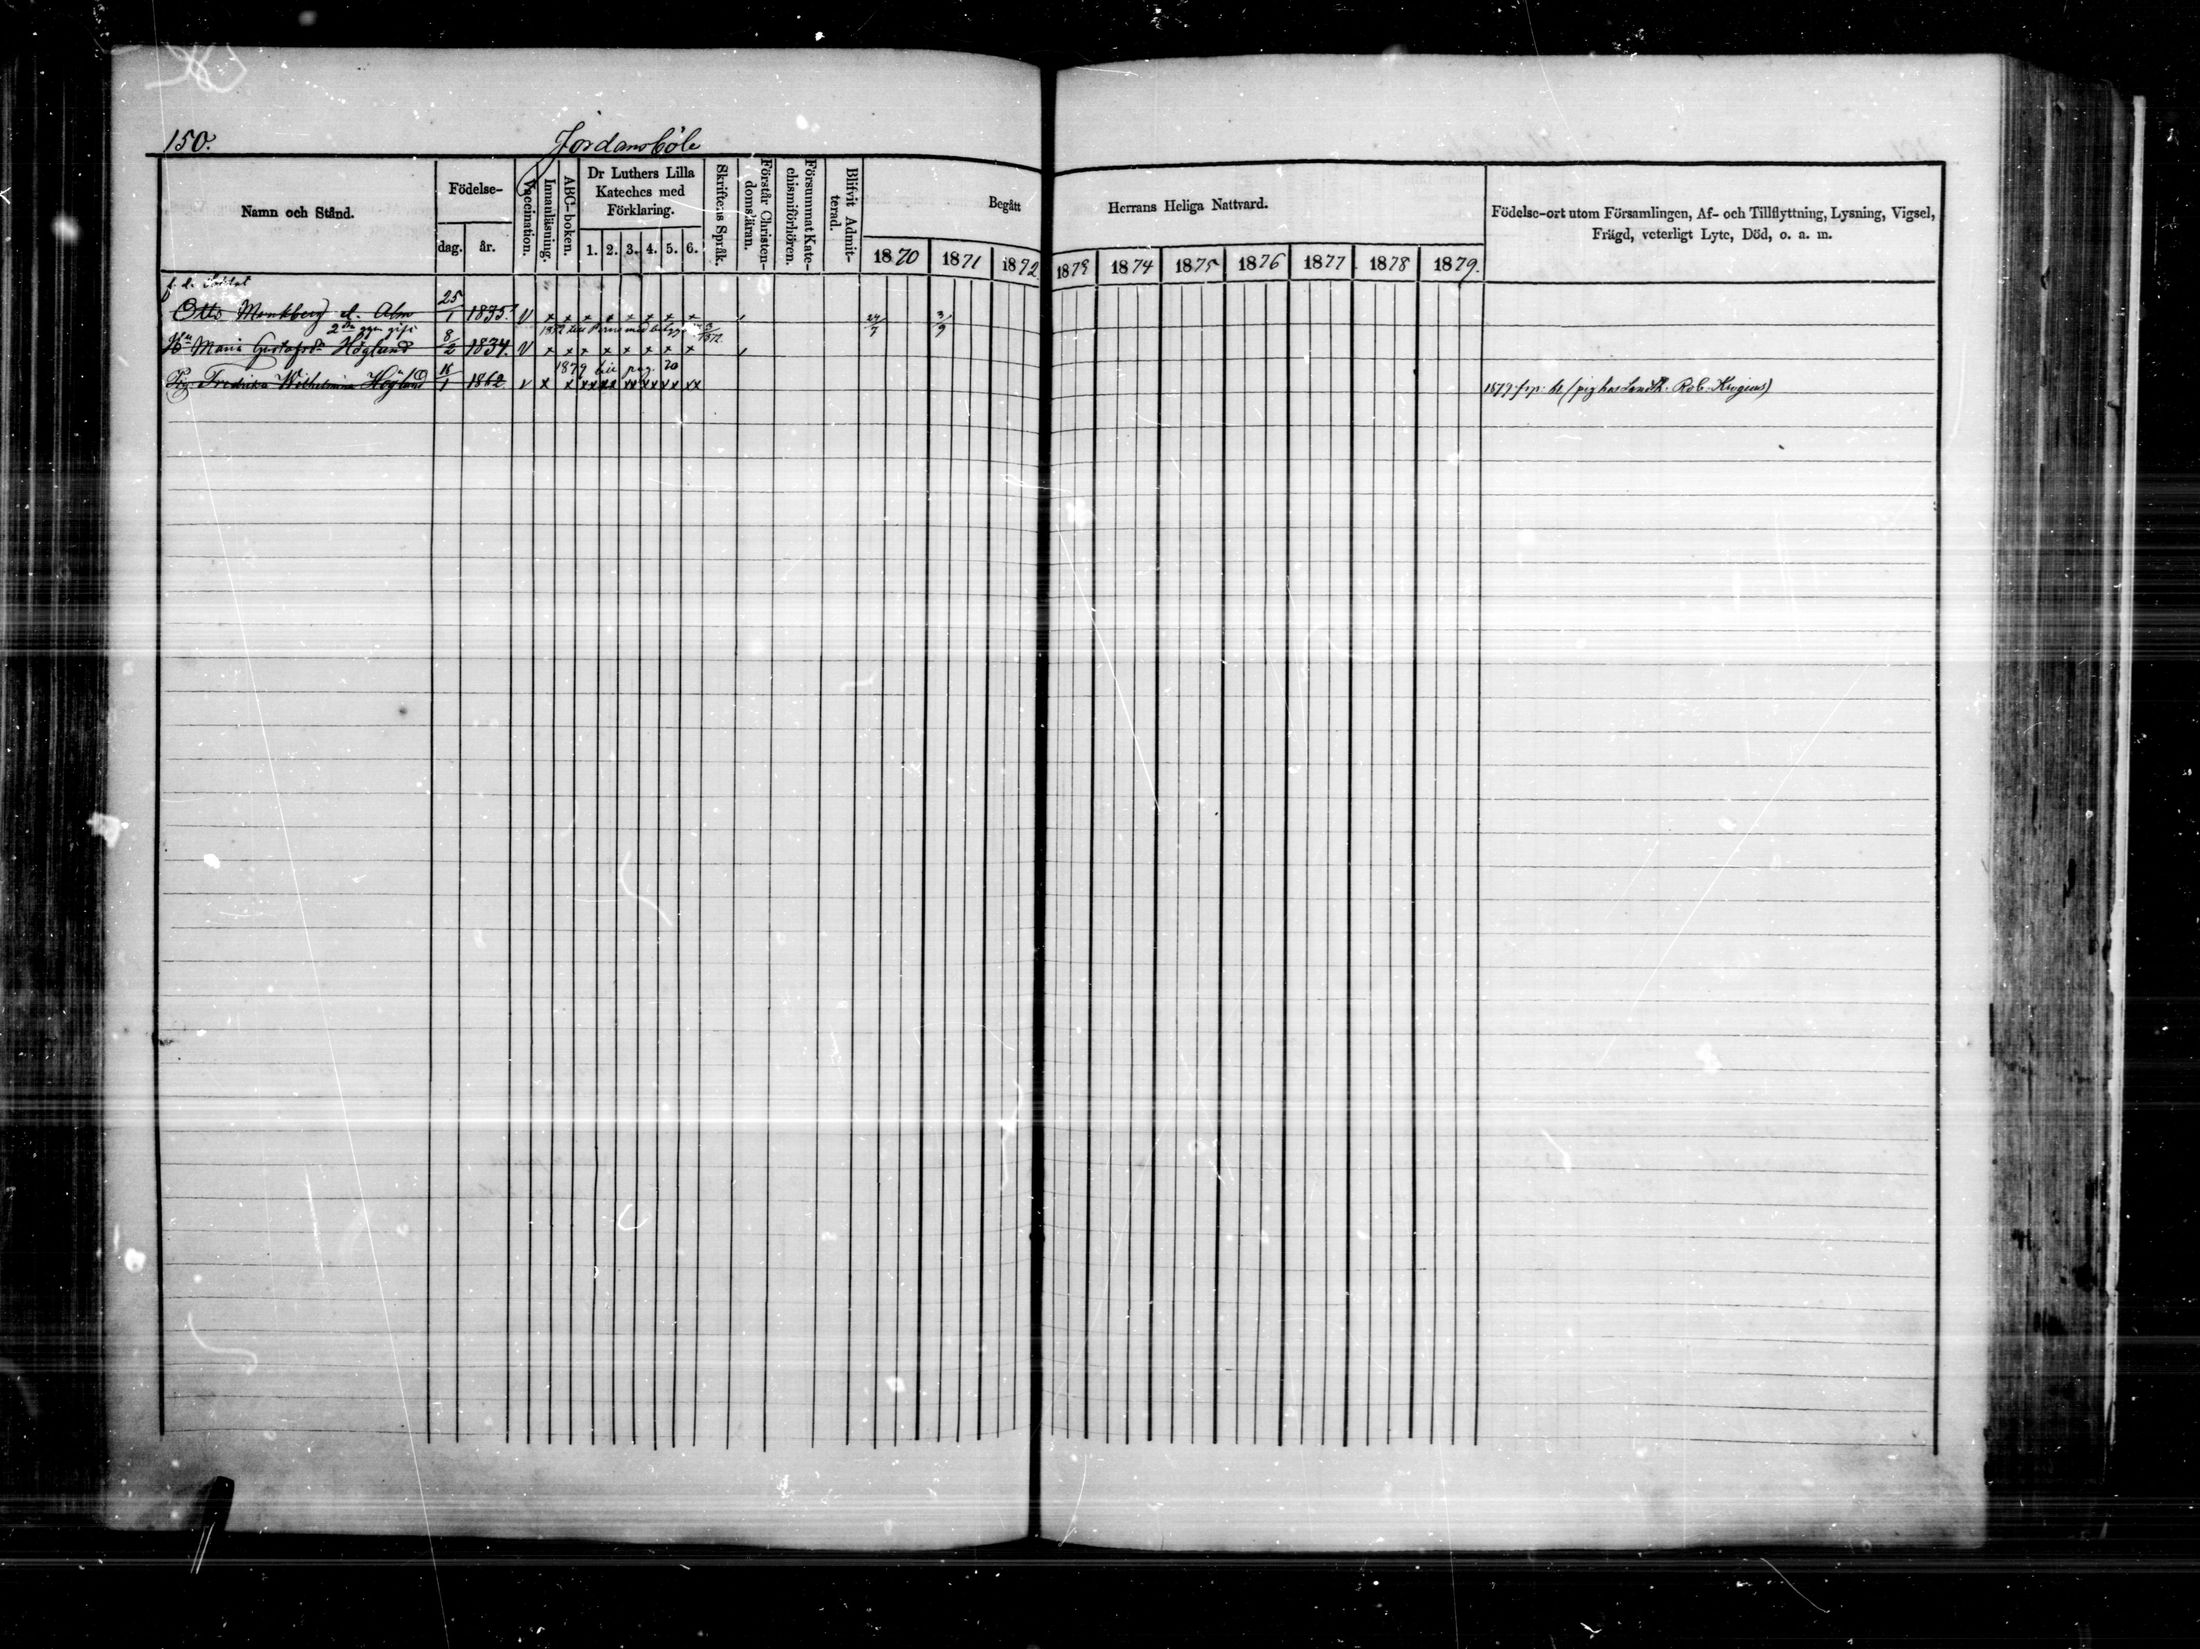 150.
Jordansböle
Namn och Stånd.
Födelse-
dag.
år.
Vaccination.
Innanläsning.
ABC-boken.
Dr Luthers Lilla
Kateches med
Förklaring.
1. 2. 3. 4. 5. 6.
Skriftens Språk.
Förstår Christen-
domsläran.
Försummat Kate-
chismiförhören.
Blifvit Admit-
terad.
Begått
Herrans Heliga Nattvard.
1870 1871 1872 1873 1874 1875 1876 1877 1878 1879.
Födelse-ort utom Församlingen, Af- och Tillflyttning, Lysning, Vigsel,
Frägd, veterligt Lyte, Död, o. a. m.
f. d. Soldat
Otto Munkberg el. Alm 25/1 1835. V x x x x x x x x 24/7 3/9
2dra ggn gift
1872 till Perno med betyg
Hu Maria Gustafsdr Höglund 8/2 1834. V x x x x x x x x
1879 pag. 20
Pig. Fredrika Wilhelmina Höglund 18/1 1862 v x x xx xx xx xx xx xx
1879 (pig hos Landth. Rob. Krogius)